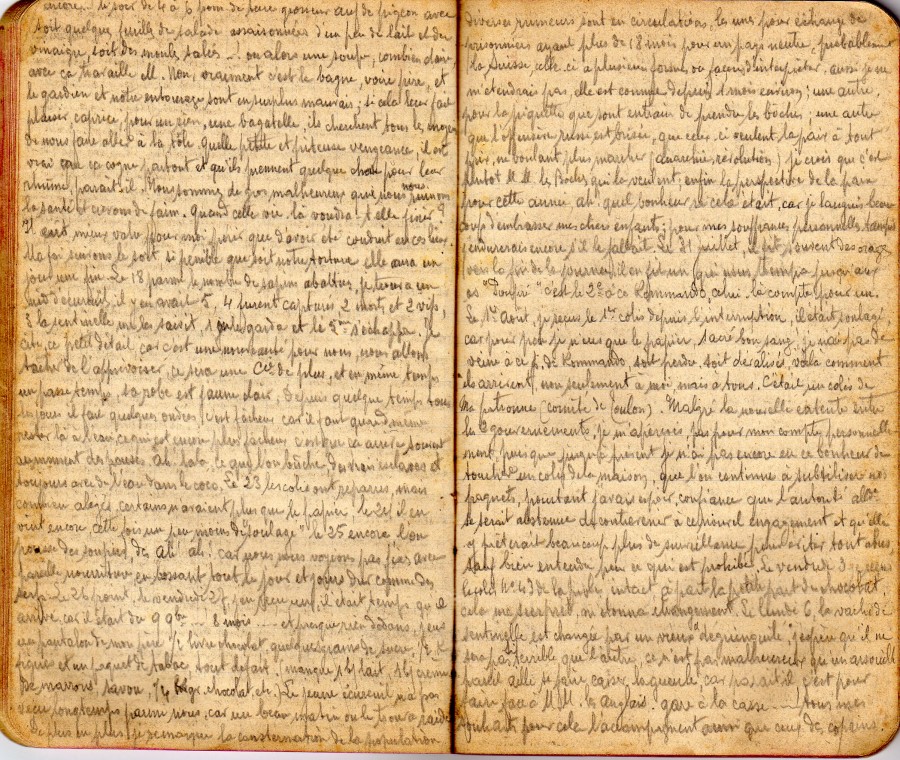 encore... le soir de 4 à 6 pom de terre grosseur œuf de pigeon avec
soit quelque feuille de salade assaisonnées d'un peu de lait et de
vinaigre, soit des moules salés ... ou alors une soupe, combien claire
avec ça travaille. Non, vraiment c'est le bagne, voire pire, et
le gardien et notre entourage sont en surplus mauvais; si cela leur fait
plaisir, caprice, pour un rien, une bagatelle, ils cherchent tous les moyens
de nous faire aller à la tôle, quelle petite et piteuse vengeance, il est
vrai que ça cogne partout et qu'ils prennent quelque chose pour leur
rhume, parait-il. Nous sommes de gros malheureux que nous
la santé et crevons de faim. Quand celle vie là voudra-t-elle finir?
Il aurait mieux valu pour moi périr que d'avoir été conduit en ce lieu.
suivons le sort si pénible que soit notre torture elle aura un
jour une fin. Le 18 parmi le nombre de sapins abattus, je trouve un
nid d'écureuils, il y en avait 5, 4 furent capturés 2 mort, et 2 vifs,
la sentinelle me les saisit, 1 garda et le 5me s'échappa. Je
cite ce petit détail car c'est une nouveauté pour nous, nous allons
tâcher de l'apprivoiser, ce sera une Cie de plus, et en même temps
un passe temps, sa robe est jaune clair, depuis quelque temps tous
les jours il fait quelques ondées, c'est fâcheux car il faut quand même
rester là à l'eau, ce qui est encore plus fâcheux c'est que ça arrive souvent
au moment des pauses. Ah! là là, ce que l'on bûche, des vrais esclaves et
toujours avec de l'eau dans le coco. Le 23 les colis ont reparus, mais
combien allégés, certains n'avaient plus que le papier! le 24 il en
vient encore cette fois un peu moins de "soulage" le 25 encore. L'on
pousse des soupirs, des ah! ah! car nous nous voyons pas fiers avec
pareille nourriture en bossant tout le jour et jours durs comme des
serfs. Le 26 point. le vendredi 27, j'en reçu un, il était temps qu'il
arrive, car il était du 9 9bre ... 8 mois ... et presque rien dedans, j'eus
un pantalon de mon père, ½ livre chocolat, quelques grains de sucre,
et un paquet de tabac, tout défait. (manque lait, crème
de marrons, savon, chocolat, etc.) Le jeune écureuil n'a pas
vécu longtemps parmi nous, car un beau matin on le trouva raide
de plus en plus je remarque la consternation de la population
diverses rumeurs sont en circulation, les unes pour échange de
prisonniers ayant plus de 18 mois pour un pays neutre, probablement
la Suisse, celle-ci a plusieurs formes ou façons d'interpréter, aussi je ne
m'étendrai pas, elle est connue depuis 1 mois environ; une autre,
pour la piquette que sont en train de prendre les boches; une autre
que l'offensive russe est brisée, que celui-ci veulent la paix à tout
prix, ne voulant plus marcher (anarchie, révolution) je crois que c'est
plutôt M.M. les Boches qui la veulent; enfin la perspective de la paix
pour cette année ah! quel bonheur si cela était, car je languis beau-
coup d'embrasser mes chers enfants; pour mes souffrances personnelles tant pis
j'endurerais encore s'il le fallait. Le 31 juillet, il fit souvent des orages
vers la fin de la journée il en fit un qui nous trempa jusqu'aux
os "Soupir" c'est le 2e à ce Kommando, celui-là compte pour un.
Le 1er Août, je reçus le 1er colis depuis l'interruption, il était soulagé,
car pour peu je n'eus que le papier, sacré bon sang, je n'ai pas de
veine à ce K. de Kommando, soit perdu, soit dévalisés, voilà comment
ils arrivent, non seulement à moi, mais à tous. C'était un colis de
Ma patronne (comité de Toulon). Malgré la nouvelle entente entre
les 2 gouvernements, je m'aperçois, pas pour mon compte personnelle
ment, puisque jusqu'à présent je n'ai pas encore eu ce bonheur de
toucher un colis de la maison, que l'on continue à subtiliser nos
paquets, pourtant j'avais espoir, confiance que l'autorité allde
se serait abstenue de contrevenir à ce nouvel engagement et qu'elle
y prêterait beaucoup plus de surveillance pour éviter tout abus
sauf bien entendu pour ce qui est prohibé, le vendredi 3 je reçus
le colis n° 43 de la intact à part la petite part du chocolat,
cela me surprit, m'étonna énormément. Le lundi 6, la vache de
sentinelle est changée par un vieux "dégringuelé", j'espère qu'il ne
sera pas terrible que l'autre, ce n'est pas malheureux qu'un
pareil aille se faire casser la gueule, car parait-il c'est pour
faire face à M.M. les Anglais, gare à la casse ... tous mes
souhaits pour cela l'accompagnent ainsi que ceux des copains.